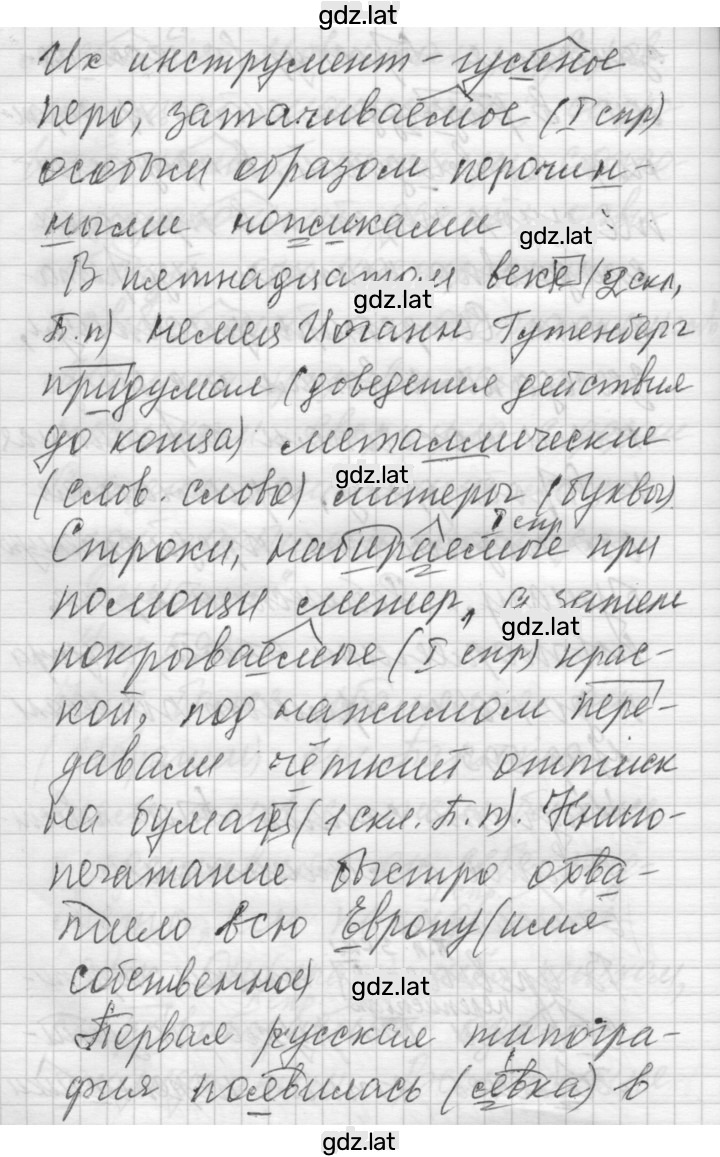 gdz.lat
Их инструмент - гусиное
перо, затачиваемое (I спр)
особым образом перочин-
ными ножиками
gdz.lat
В пятнадцатом веке (2 скл,
gdz.lat
П.п) немец Иоганн Гутенберг
придумал (доведения действия
до конца) металлические
gdz.lat
(слов. слово) литеры (буквы).
I спр
Строки, набираемые при
помощи литер, а затем
gdz.lat
покрываемые (I спр) крас-
кой, под нажимом пере-
давали чёткий оттиск
на бумаге (1 скл. П.п). Книго-
печатание быстро охва-
тило всю Европу (имя
собственное)
gdz.lat
Первая русская типогра-
фия появилась (явка) в
gdz.lat